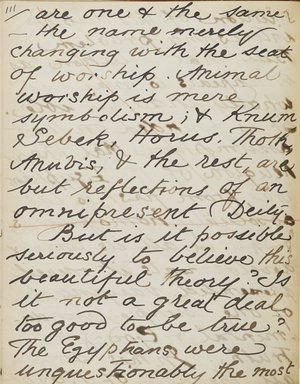 111
— are one & the same
— the name merely
changing with the seat
of worship. Animal
worship is mere
symbolism; & Knum
& Sebek, Horus, Thoth,
Anubis, & the rest, are
but reflections of an
omnipresent Deity.
But is it possible
seriously to believe this
beautiful theory? Is
it not a great deal
too good to be true?
The Egyptians were
unquestionably the most